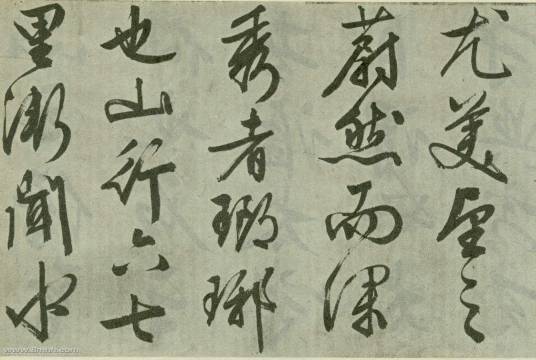 尤美望之
蔚然而深
秀者瑯琊
也山行六七
里漸聞水